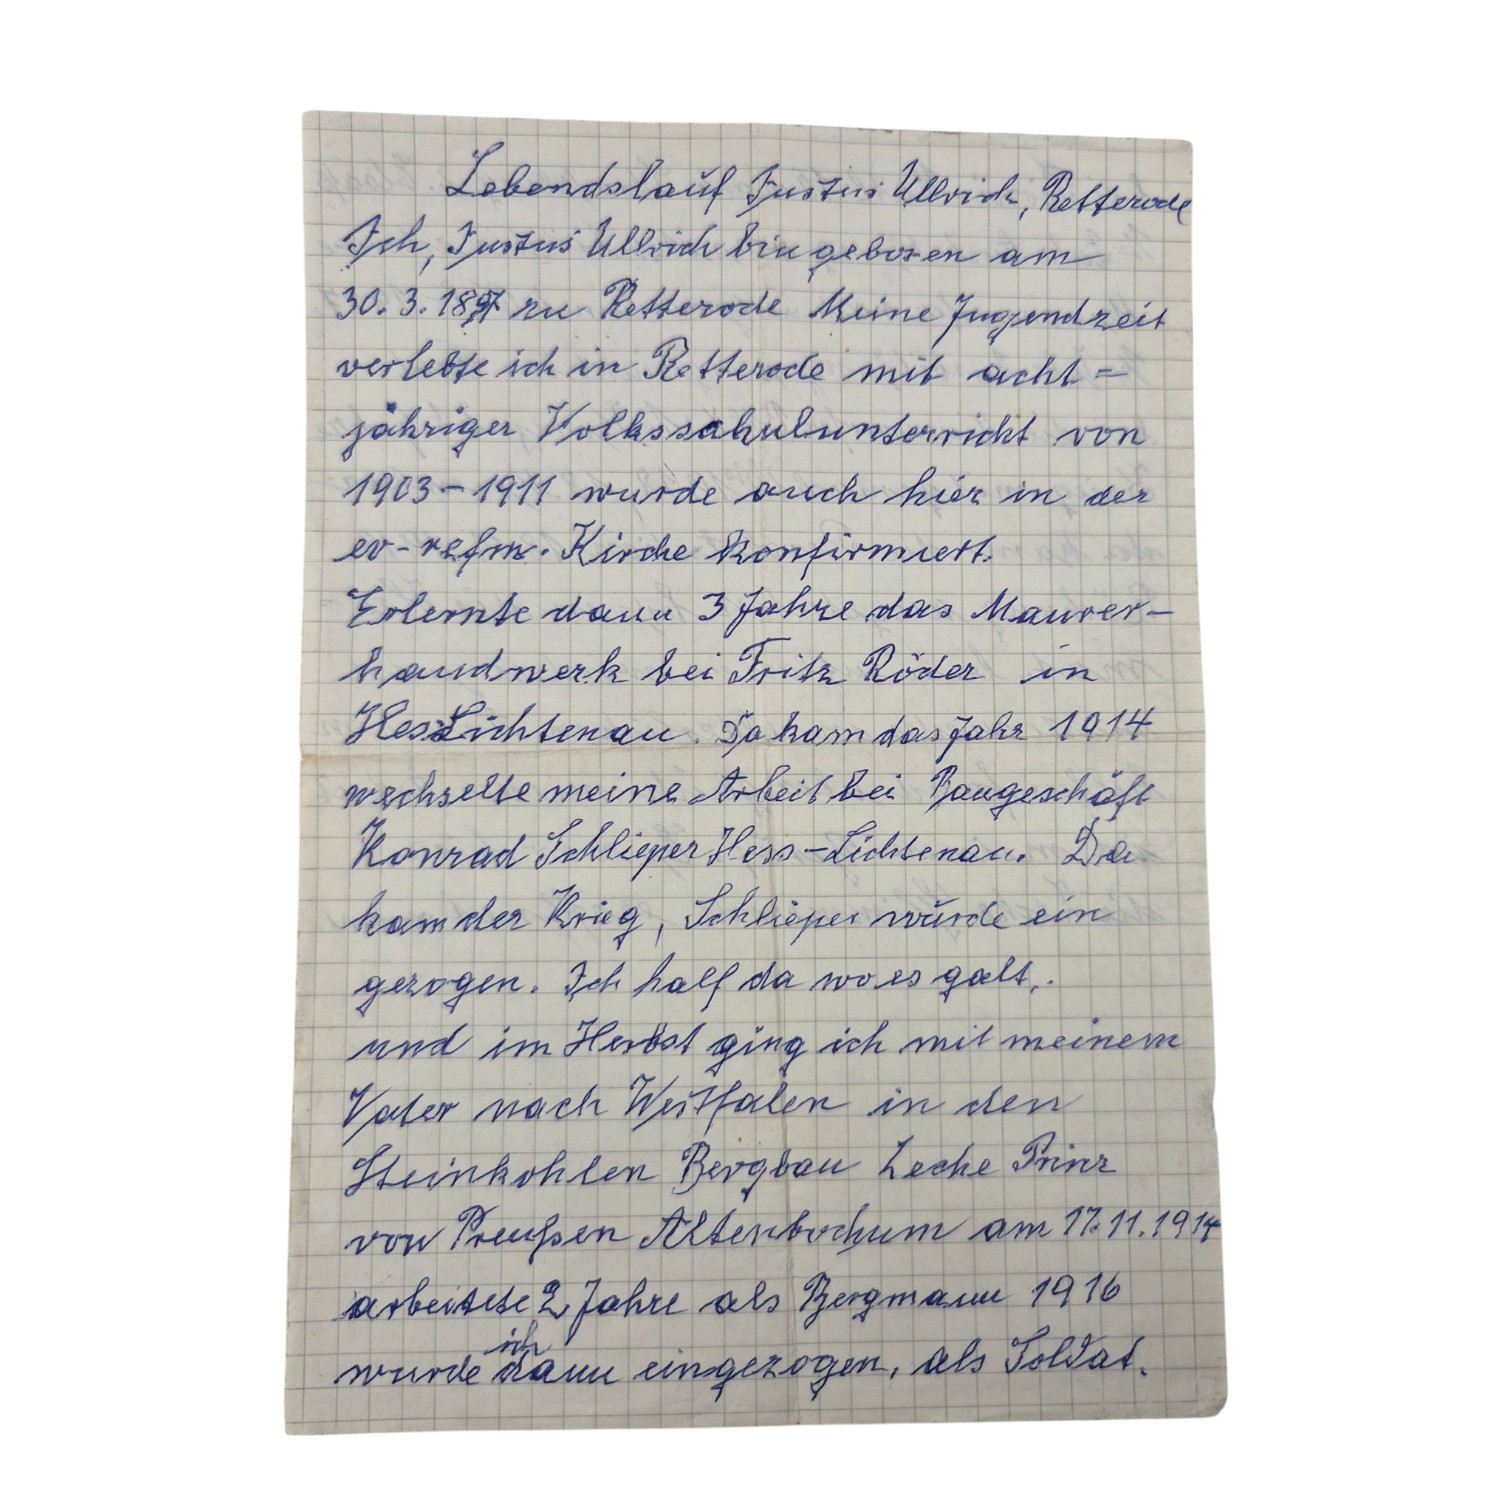 Lebendslauf Justus Ullrich, Retterode
Ich, Justus Ullrich bin geboren am
30.3.1897 zu Retterode Meine Jugendzeit
verlebte ich in Retterode mit acht=
jähriger Volksschulunterricht von
1903-1911 wurde auch hier in der
ev-refm. Kirche konfirmiert.
Erlernte dann 3 Jahre das Maurer-
handwerk bei Fritz Röder in
Hess Lichtenau. Da kam das Jahr 1914
wechselte meine Arbeit bei Baugeschäft
Konrad Schlieper Hess-Lichtenau. Da
kam der Krieg, Schlieper wurde ein
gezogen. Ich half da wo es galt,.
und im Herbst ging ich mit meinem
Vater nach Westfalen in den
Steinkohlen Bergbau Zeche Prinz
von Preußen Altenbochum am 17.11.1914
arbeitete 2 Jahre als Bergmann 1916
ich
wurde dann eingezogen, als Soldat.